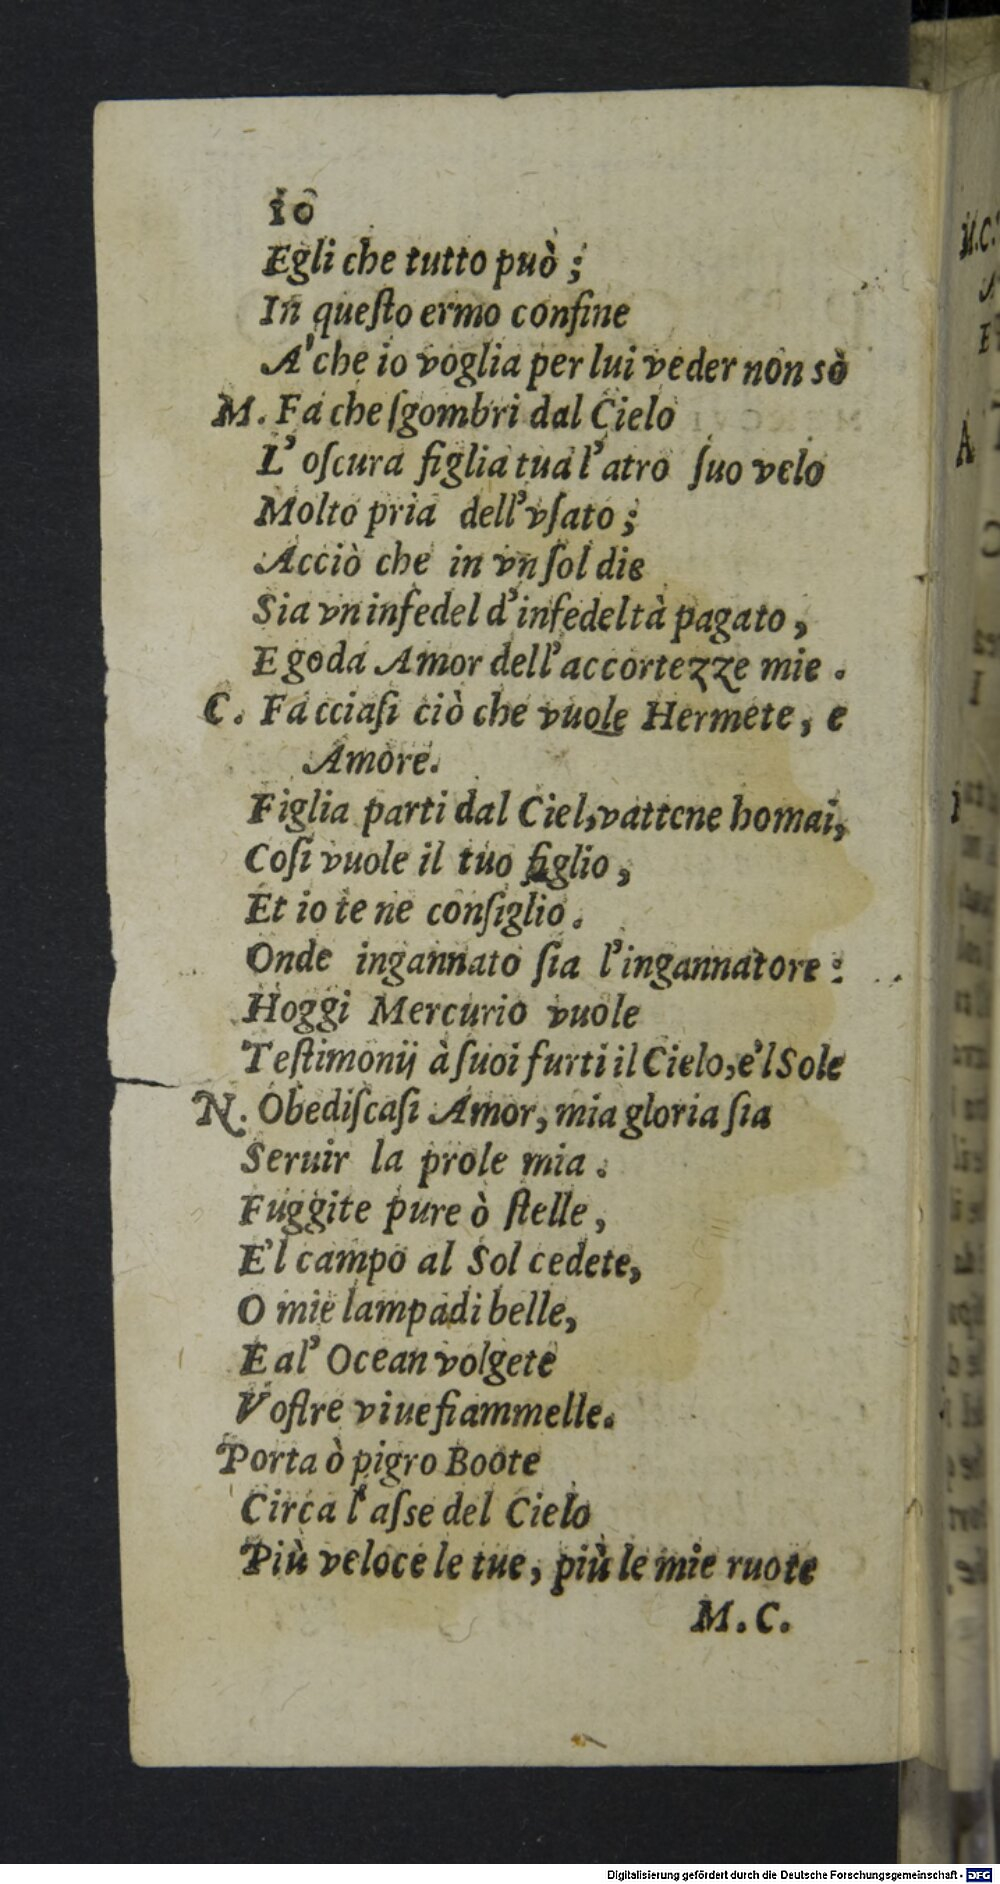 10
Egli che tutto può;
In queſto ermo confine
A'che io voglia per lui veder non sò
M. Fa che ſgombri dal Cielo
L' oſcura figlia tua l'atro ſuo velo
Molto pria dell'vſato;
Acciò che in vn ſol die
Sia vn infedel d'infedeltà pagato,
E goda Amor dell'accortezze mie.
C. Facciaſi ciò che vuole Hermete, e
Amore.
Figlia parti dal Ciel, vattene homai,
Coſi vuole il tuo figlio,
Et io te ne conſiglio.
Onde ingannato ſia l'ingannatore:
Hoggi Mercurio vuole
Teſtimonij à ſuoi furti il Cielo, e'l Sole
N. Obediſcaſi Amor, mia gloria ſia
Seruir la prole mia.
Fuggite pure ò ſtelle,
E'l campo al Sol cedete,
O mie lampadi belle,
E al' Ocean volgete
Voſtre viue fiammelle.
Porta ò pigro Boote
Circa l'aſse del Cielo
Più veloce le tue, più le mie ruote
M. C.
Digitalisierung gefördert durch die Deutsche Forschungsgemeinschaft - DFG